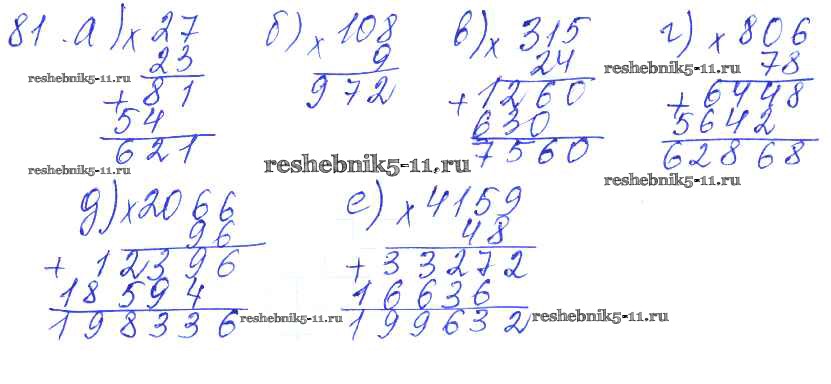 81. а) × 27 б) × 108 в) × 315 г) × 806
23 9 24 78
reshebnik5-11.ru reshebnik5-11.ru
+ 81 972 + 1260 + 6448
54 630 5642
621 7560 62868
reshebnik5-11.ru reshebnik5-11.ru reshebnik5-11.ru
д) × 2066 е) × 4159
96 48
+ 12396 + 33272
18594 16636
198336 199632
reshebnik5-11.ru reshebnik5-11.ru